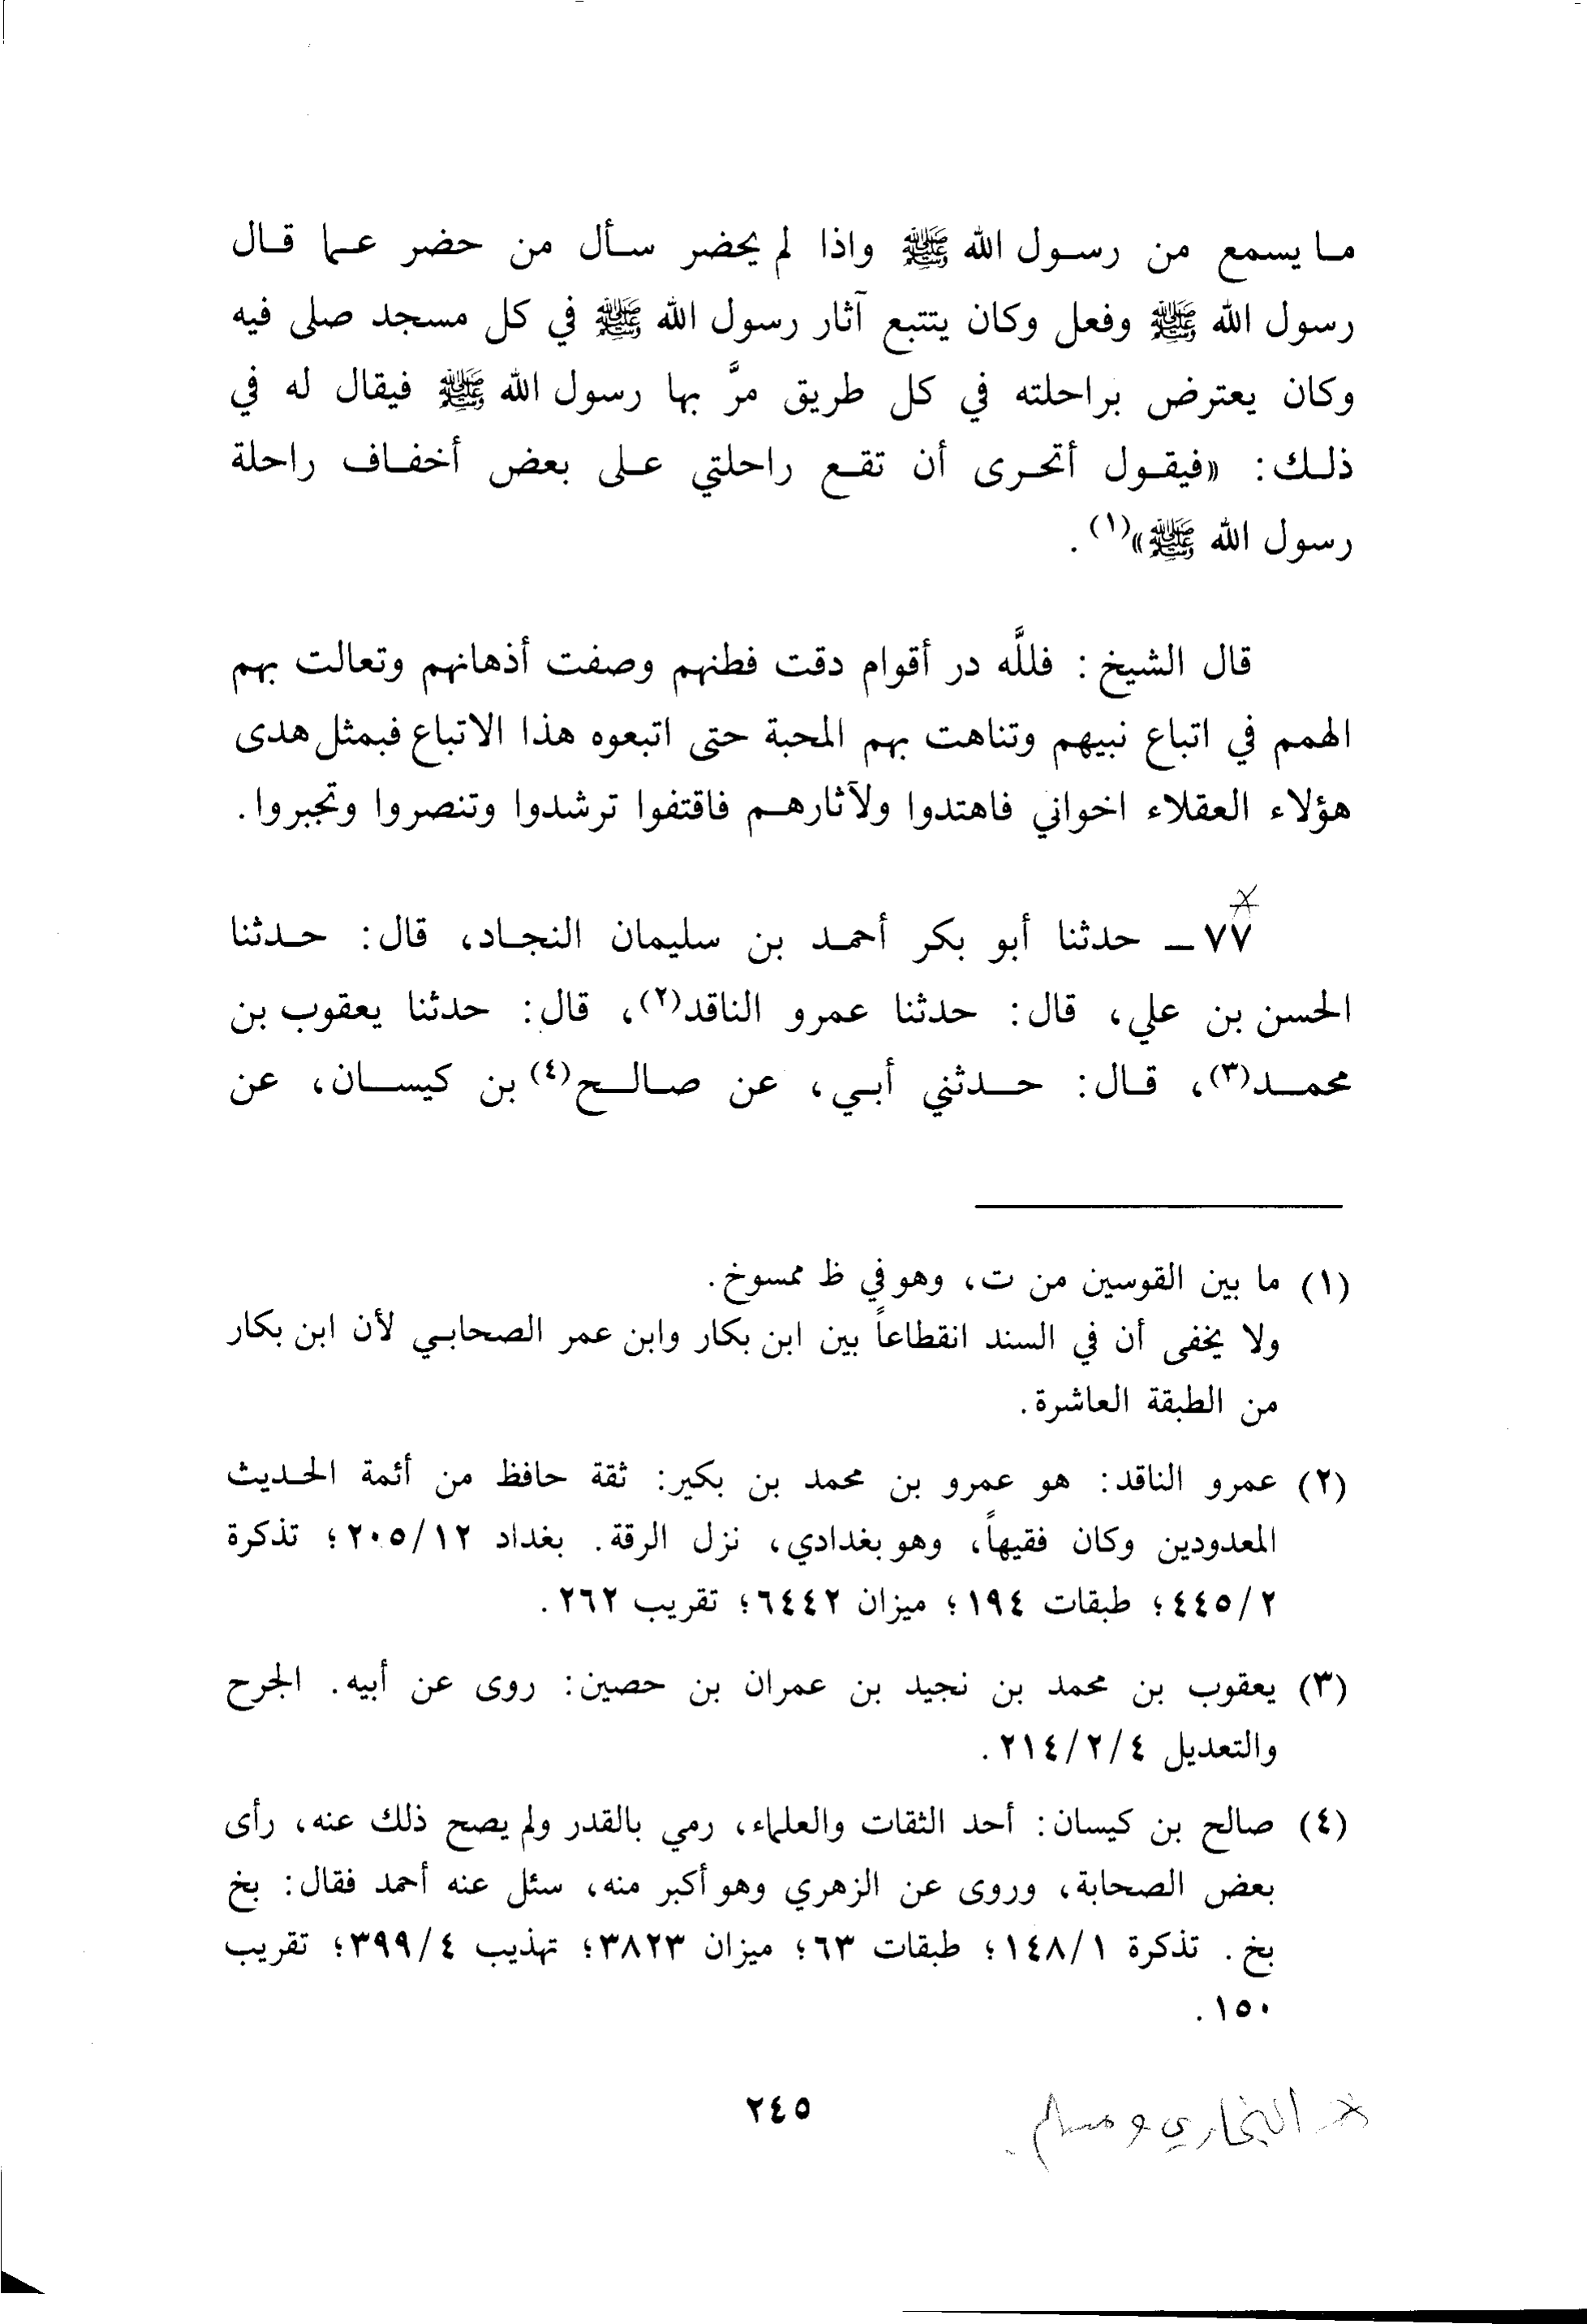 ما يسمع من رسول الله ﷺ واذا لم يحضر سأل من حضر عما قال
رسول الله ﷺ وفعل وكان يتتبع آثار رسول الله ﷺ في كل مسجد صلى فيه
وكان يعترض براحلته في كل طريق مرَّ بها رسول الله ﷺ فيقال له في
ذلك: «فيقول أتحرى أن تقع راحلتي على بعض أخفاف راحلة
رسول الله ﷺ»(١).
قال الشيخ: فللَّه در أقوام دقت فطنهم وصفت أذهانهم وتعالت بهم
الهمم في اتباع نبيهم وتناهت بهم المحبة حتى اتبعوه هذا الاتباع فبمثل هدى
هؤلاء العقلاء اخواني فاهتدوا ولآثارهم فاقتفوا ترشدوا وتنصروا وتجبروا.
٧٧ ـ حدثنا أبو بكر أحمد بن سليمان النجاد، قال: حدثنا
الحسن بن علي، قال: حدثنا عمرو الناقد(٢)، قال: حدثنا يعقوب بن
محمد(٣)، قال: حدثني أبي، عن صالح(٤) بن كيسان، عن
(١) ما بين القوسين من ت، وهو في ظ ممسوخ.
ولا يخفى أن في السند انقطاعاً بين ابن بكار وابن عمر الصحابي لأن ابن بكار
من الطبقة العاشرة.
(٢) عمرو الناقد: هو عمرو بن محمد بن بكير: ثقة حافظ من أئمة الحديث
المعدودين وكان فقيهاً، وهو بغدادي، نزل الرقة. بغداد ٢٠٥/١٢؛ تذكرة
٤٤٥/٢؛ طبقات ١٩٤؛ ميزان ٦٤٤٢؛ تقريب ٢٦٢.
(٣) يعقوب بن محمد بن نجيد بن عمران بن حصين: روى عن أبيه. الجرح
والتعديل ٢١٤/٢/٤.
(٤) صالح بن كيسان: أحد الثقات والعلماء، رمي بالقدر ولم يصح ذلك عنه، رأى
بعض الصحابة، وروى عن الزهري وهو أكبر منه، سئل عنه أحمد فقال: بخ
بخ. تذكرة ١٤٨/١؛ طبقات ٦٣؛ ميزان ٣٨٢٣؛ تهذيب ٣٩٩/٤؛ تقريب
١٥٠.
* البخاري ومسلم.
٢٤٥